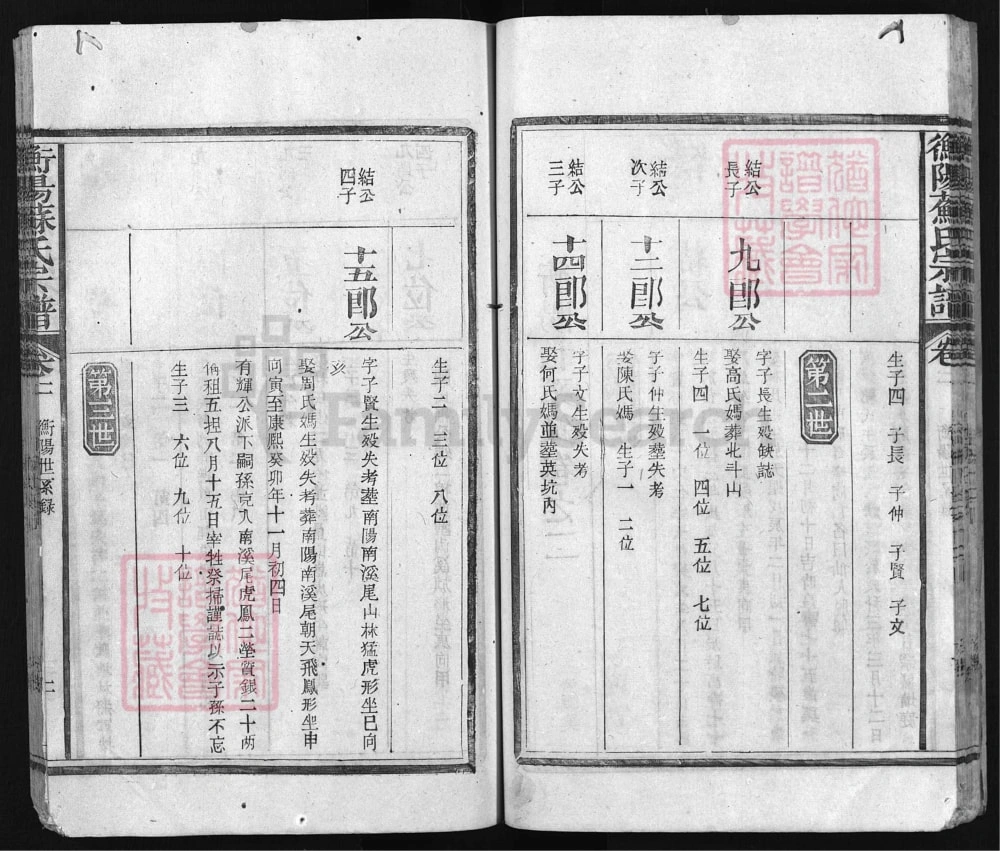 衡陽蘇氏宗譜 卷
生子四 子長 子仲 子賢 子文
第二世
結公長子
九郎公
字子長生殁缺誌
娶高氏媽葬北斗山
生子四 一位 四位 五位 七位
結公次子
十二郎公
字子仲生殁塟失考
娶陳氏媽 生子一 二位
結公三子
十四郎公
字子文生殁失考
娶何氏媽並塟英坑內
生子二 三位 八位
結公四子
十五郎公
字子賢生殁失考塟南陽南溪尾山林猛虎形坐巳向
亥
娶周氏媽生殁失考葬南陽南溪尾朝天飛鳳形坐申
向寅至康熙癸卯年十一月初四日
有輝公派下嗣孫克入南溪尾虎鳳二塋實銀二十兩
租五捏八月十五日宰牲祭掃謹誌以示子孫不忘
生子三 六位 九位 十位
第三世
衡陽蘇氏宗譜 卷 衡陽世系錄
FamilySearch